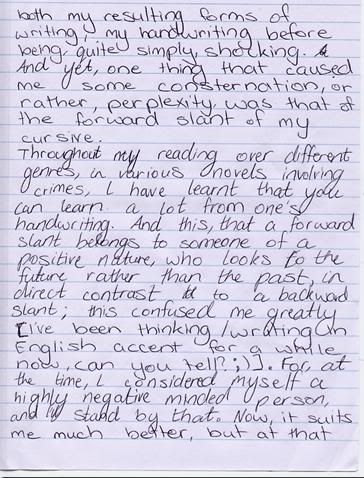 both my resulting forms of
writing; my handwriting before
being, quite simply, shocking.
And yet, one thing that caused
me some consternation, or
rather, perplexity, was that of
the forward slant of my
cursive.
Throughout my reading over different
genres, in various novels involving
crimes, I have learnt that you
can learn a lot from one's
handwriting. And this, that a forward
slant belongs to someone of a
positive nature, who looks to the
future rather than the past, in
direct contrast to a backward
slant; this confused me greatly
[I've been thinking/writing in
English accent for a while
now, can you tell? ;)]. For, at
the time, I considered myself a
highly negative minded person,
and I'd stand by that. Now, it suits
me much better, but at that